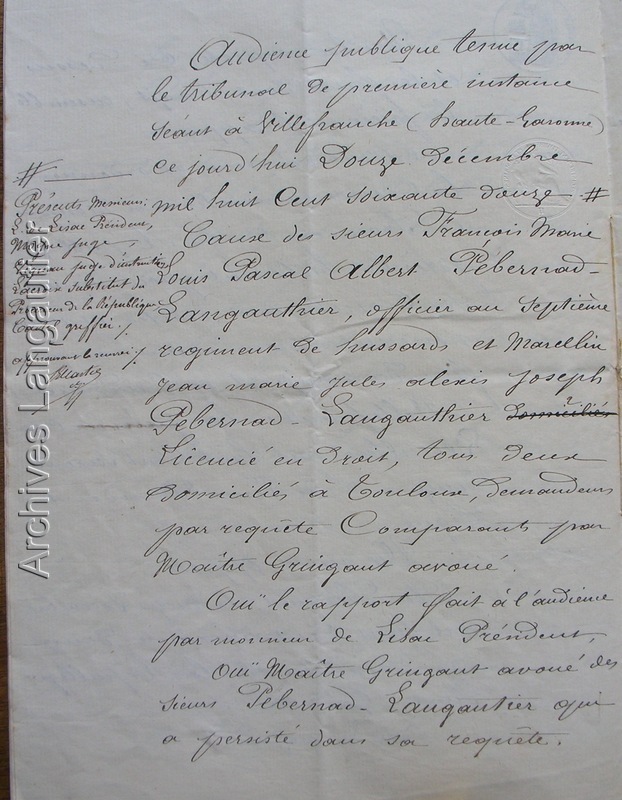 Audience publique tenue par
le tribunal de première instance
séant à Villefranche (haute-Garonne)
ce jourd'hui Douze décembre
mil huit Cent soixante douze #
#
Présents Messieurs
de Lisac Président,
juge
juge d'instruction
Lacroix substitut du
Procureur de la République
greffier ./.
approuvant le renvoi ./.
Cause des sieurs François Marie
Louis Pascal Albert Pébernad-
Langauthier, officier au Septième
regiment de hussards et Marcellin
Jean marie Jules alexis Joseph
Pebernad-Langauthier domiciliés
Licencié en Droit, tous deux
Domiciliés à Toulouse, demandeurs
par requête Comparants par
Maître Gringaut avoué.
Ouï le rapport fait à l'audience
par monsieur de Lisac Président,
Ouï Maître Gringaut avoué des
sieurs Pebernad-Langautier qui
a persisté dans sa requête.
Archives Langautier